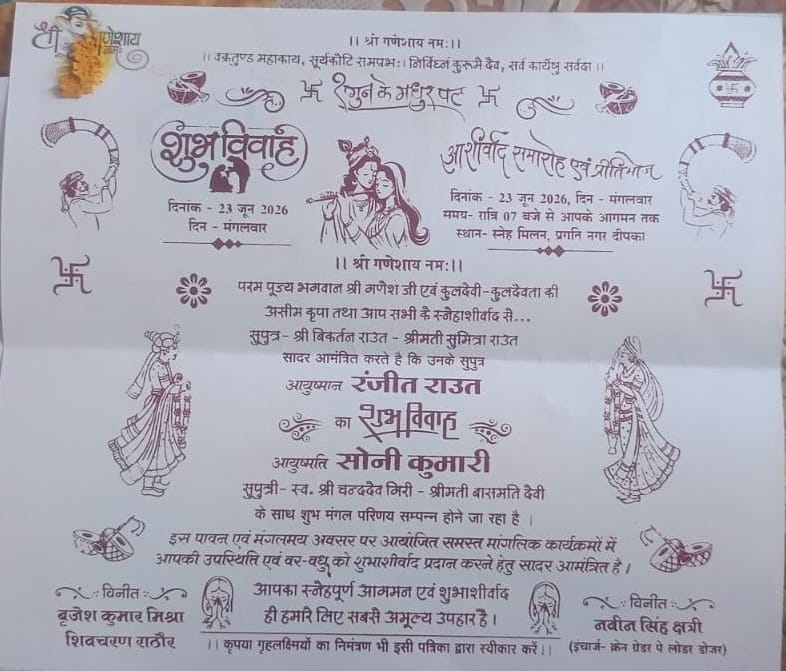 श्री गणेशाय नमः
।। श्री गणेशाय नमः।।
।। वक्रतुण्ड महाकाय, सूर्यकोटि समप्रभः। निर्विघ्नं कुरूमे देव, सर्व कार्येषु सर्वदा ।।
卐 शगुन के मधुर पल 卐
शुभ विवाह
दिनांक - 23 जून 2026
दिन - मंगलवार
आशीर्वाद समारोह एवं प्रीतिभोज
दिनांक - 23 जून 2026, दिन - मंगलवार
समय- रात्रि 07 बजे से आपके आगमन तक
स्थान- स्नेह मिलन, प्रगति नगर दीपका
।। श्री गणेशाय नमः।।
परम पूज्य भगवान श्री गणेश जी एवं कुलदेवी-कुलदेवता की
असीम कृपा तथा आप सभी के स्नेहाशीर्वाद से...
सुपुत्र- श्री बिकर्तन राउत - श्रीमती सुमित्रा राउत
सादर आमंत्रित करते है कि उनके सुपुत्र
आयुष्मान रंजीत राउत
का शुभ विवाह
आयुष्मति सोनी कुमारी
सुपुत्री- स्व. श्री चन्ददेव गिरी - श्रीमती बासमति देवी
के साथ शुभ मंगल परिणय सम्पन्न होने जा रहा है ।
इस पावन एवं मंगलमय अवसर पर आयोजित समस्त मांगलिक कार्यक्रमों में
आपकी उपस्थिति एवं वर-वधू को शुभाशीर्वाद प्रदान करने हेतु सादर आमंत्रित है ।
आपका स्नेहपूर्ण आगमन एवं शुभाशीर्वाद
ही हमारे लिए सबसे अमूल्य उपहार है ।
।। कृपया गृहलक्ष्मियों का निमंत्रण भी इसी पत्रिका द्वारा स्वीकार करें ।।
विनीत :
बृजेश कुमार मिश्रा
शिवचरण राठौर
: विनीत :
नवीन सिंह क्षत्री
(इंचार्ज- क्रेन ग्रेडर पे लोडर डोजर)